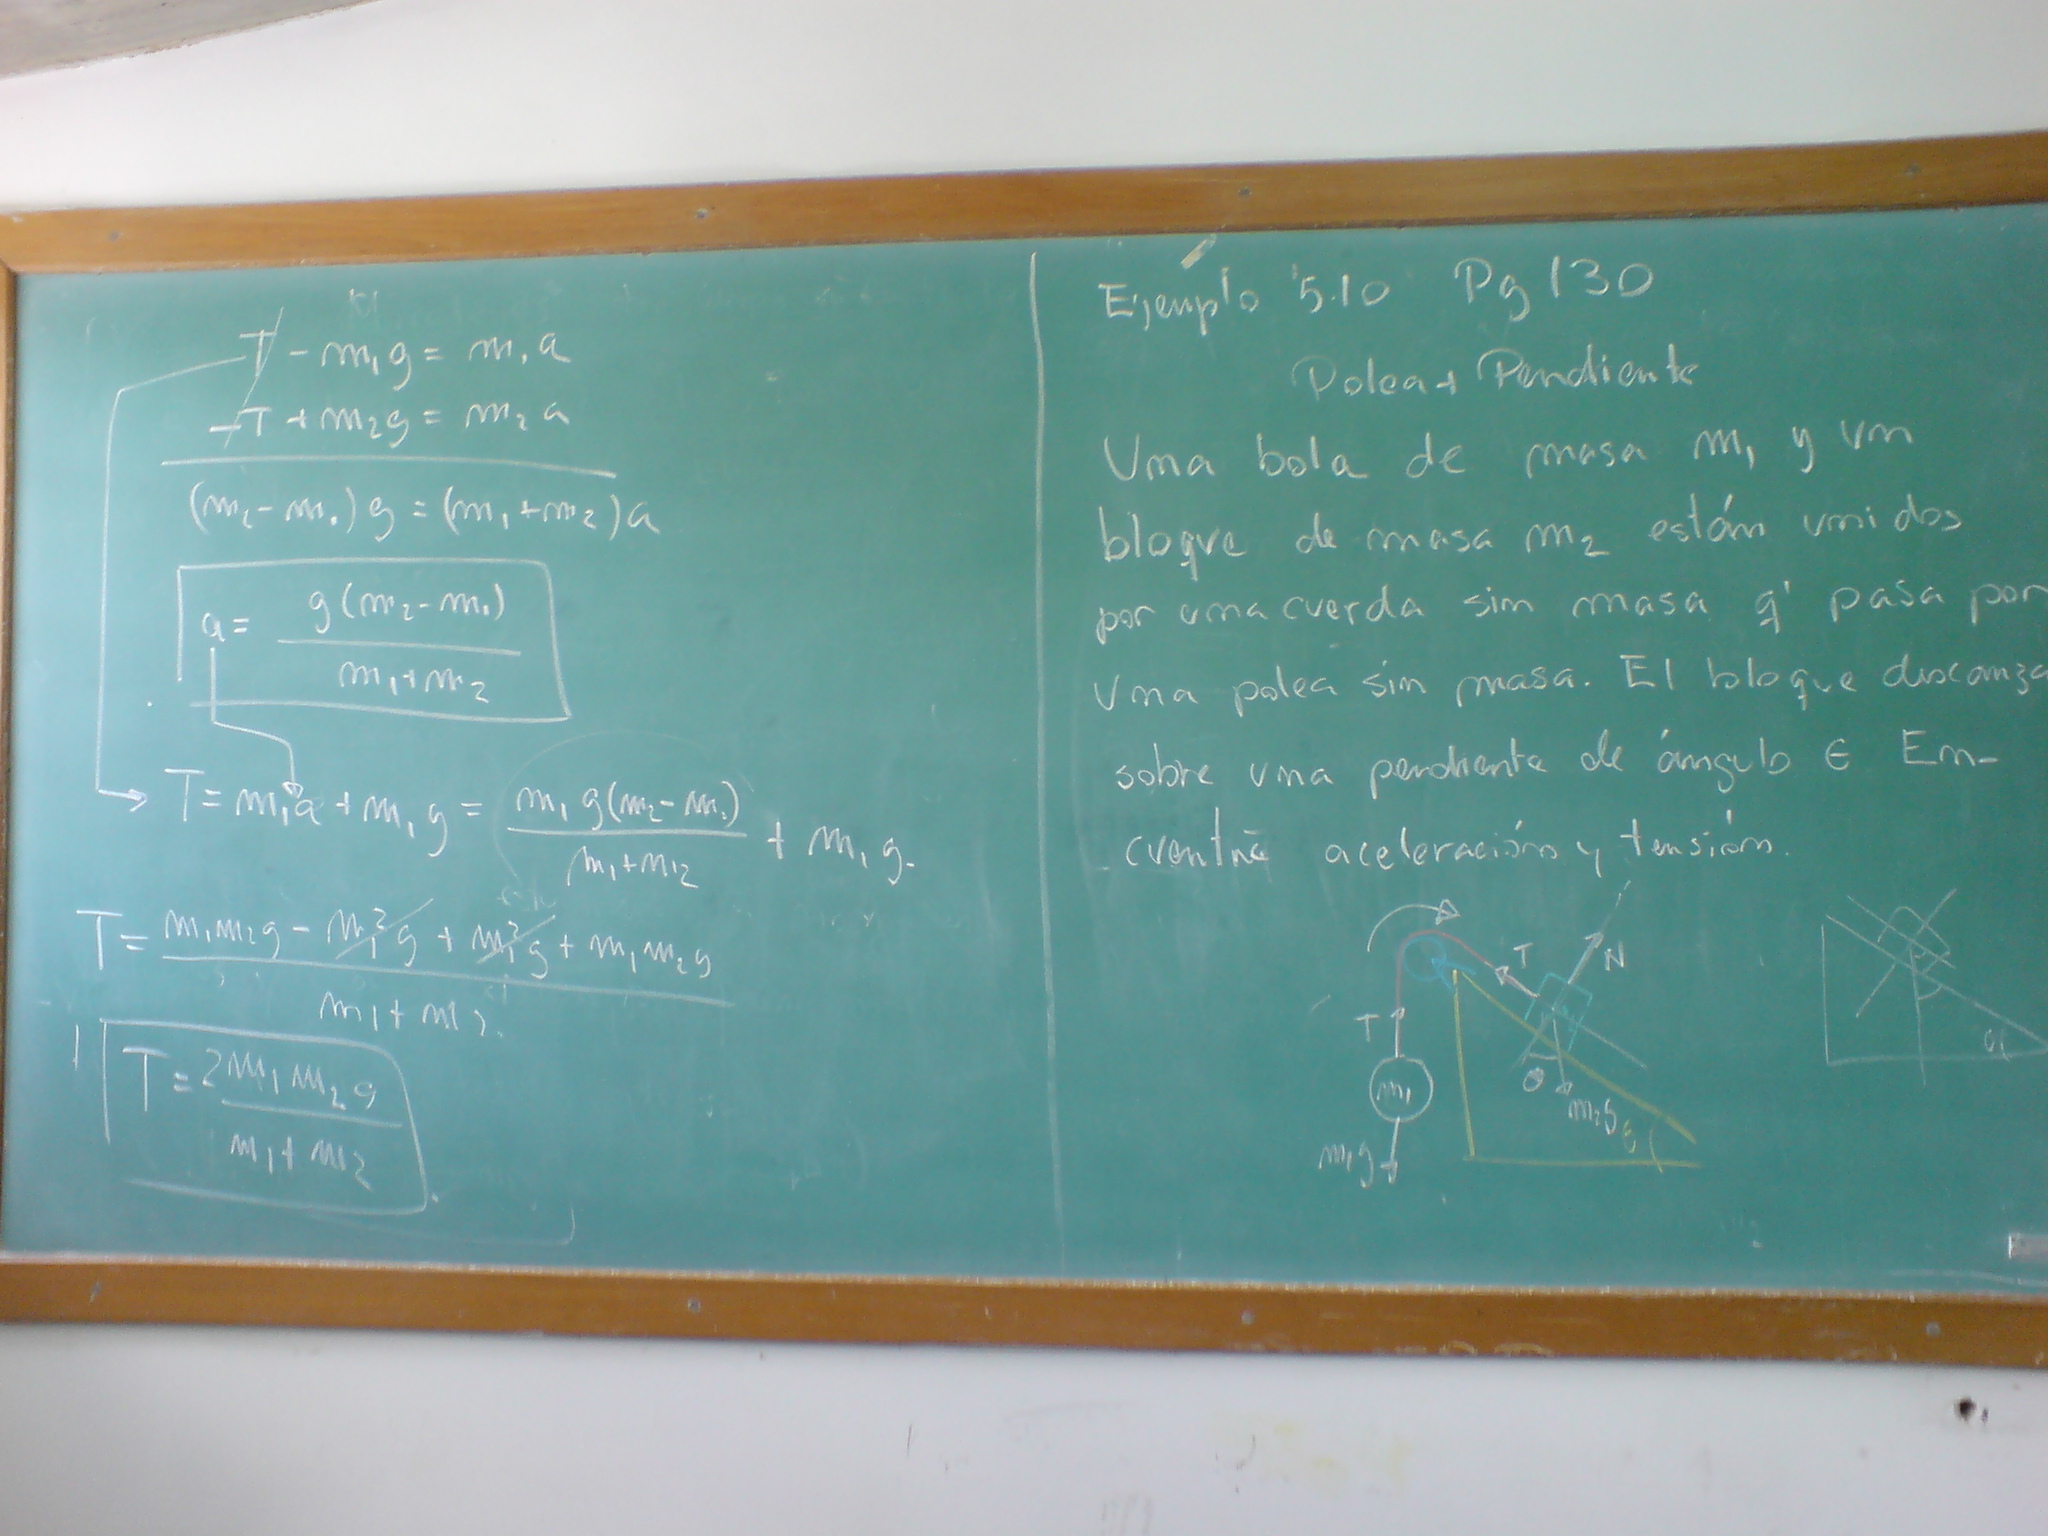 T - m₁g = m₁a
-T + m₂g = m₂a
(m₂ - m₁)g = (m₁ + m₂)a
a = g(m₂ - m₁) / m₁ + m₂
T = m₁a + m₁g = m₁g(m₂ - m₁) / m₁ + m₂ + m₁g.
T = m₁m₂g - m₁²g + m₁²g + m₁m₂g / m₁ + m₂.
T = 2m₁m₂g / m₁ + m₂
Ejemplo 5.10 Pg 130
Polea + Pendiente
Una bola de masa m₁ y un
bloque de masa m₂ están unidos
por una cuerda sin masa q' pasa por
una polea sin masa. El bloque descanza
sobre una pendiente de ángulo Є En-
cuentre aceleración y tensión.
T
T
N
m₁
m₁g
θ
m₂g
Є
α